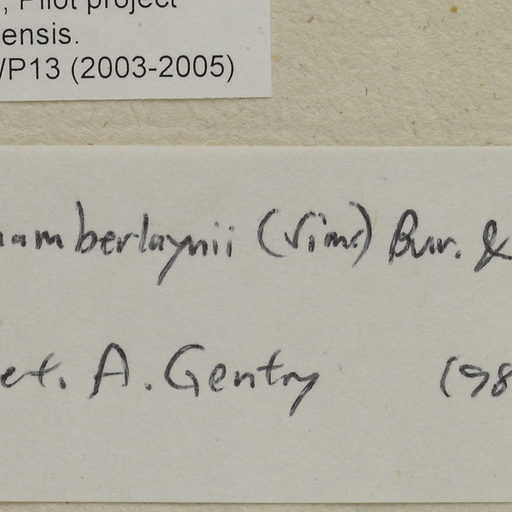 , Pilot project
ensis.
/P13 (2003-2005)
hamberlaynii (Sims) Bur. &
et. A. Gentry 198